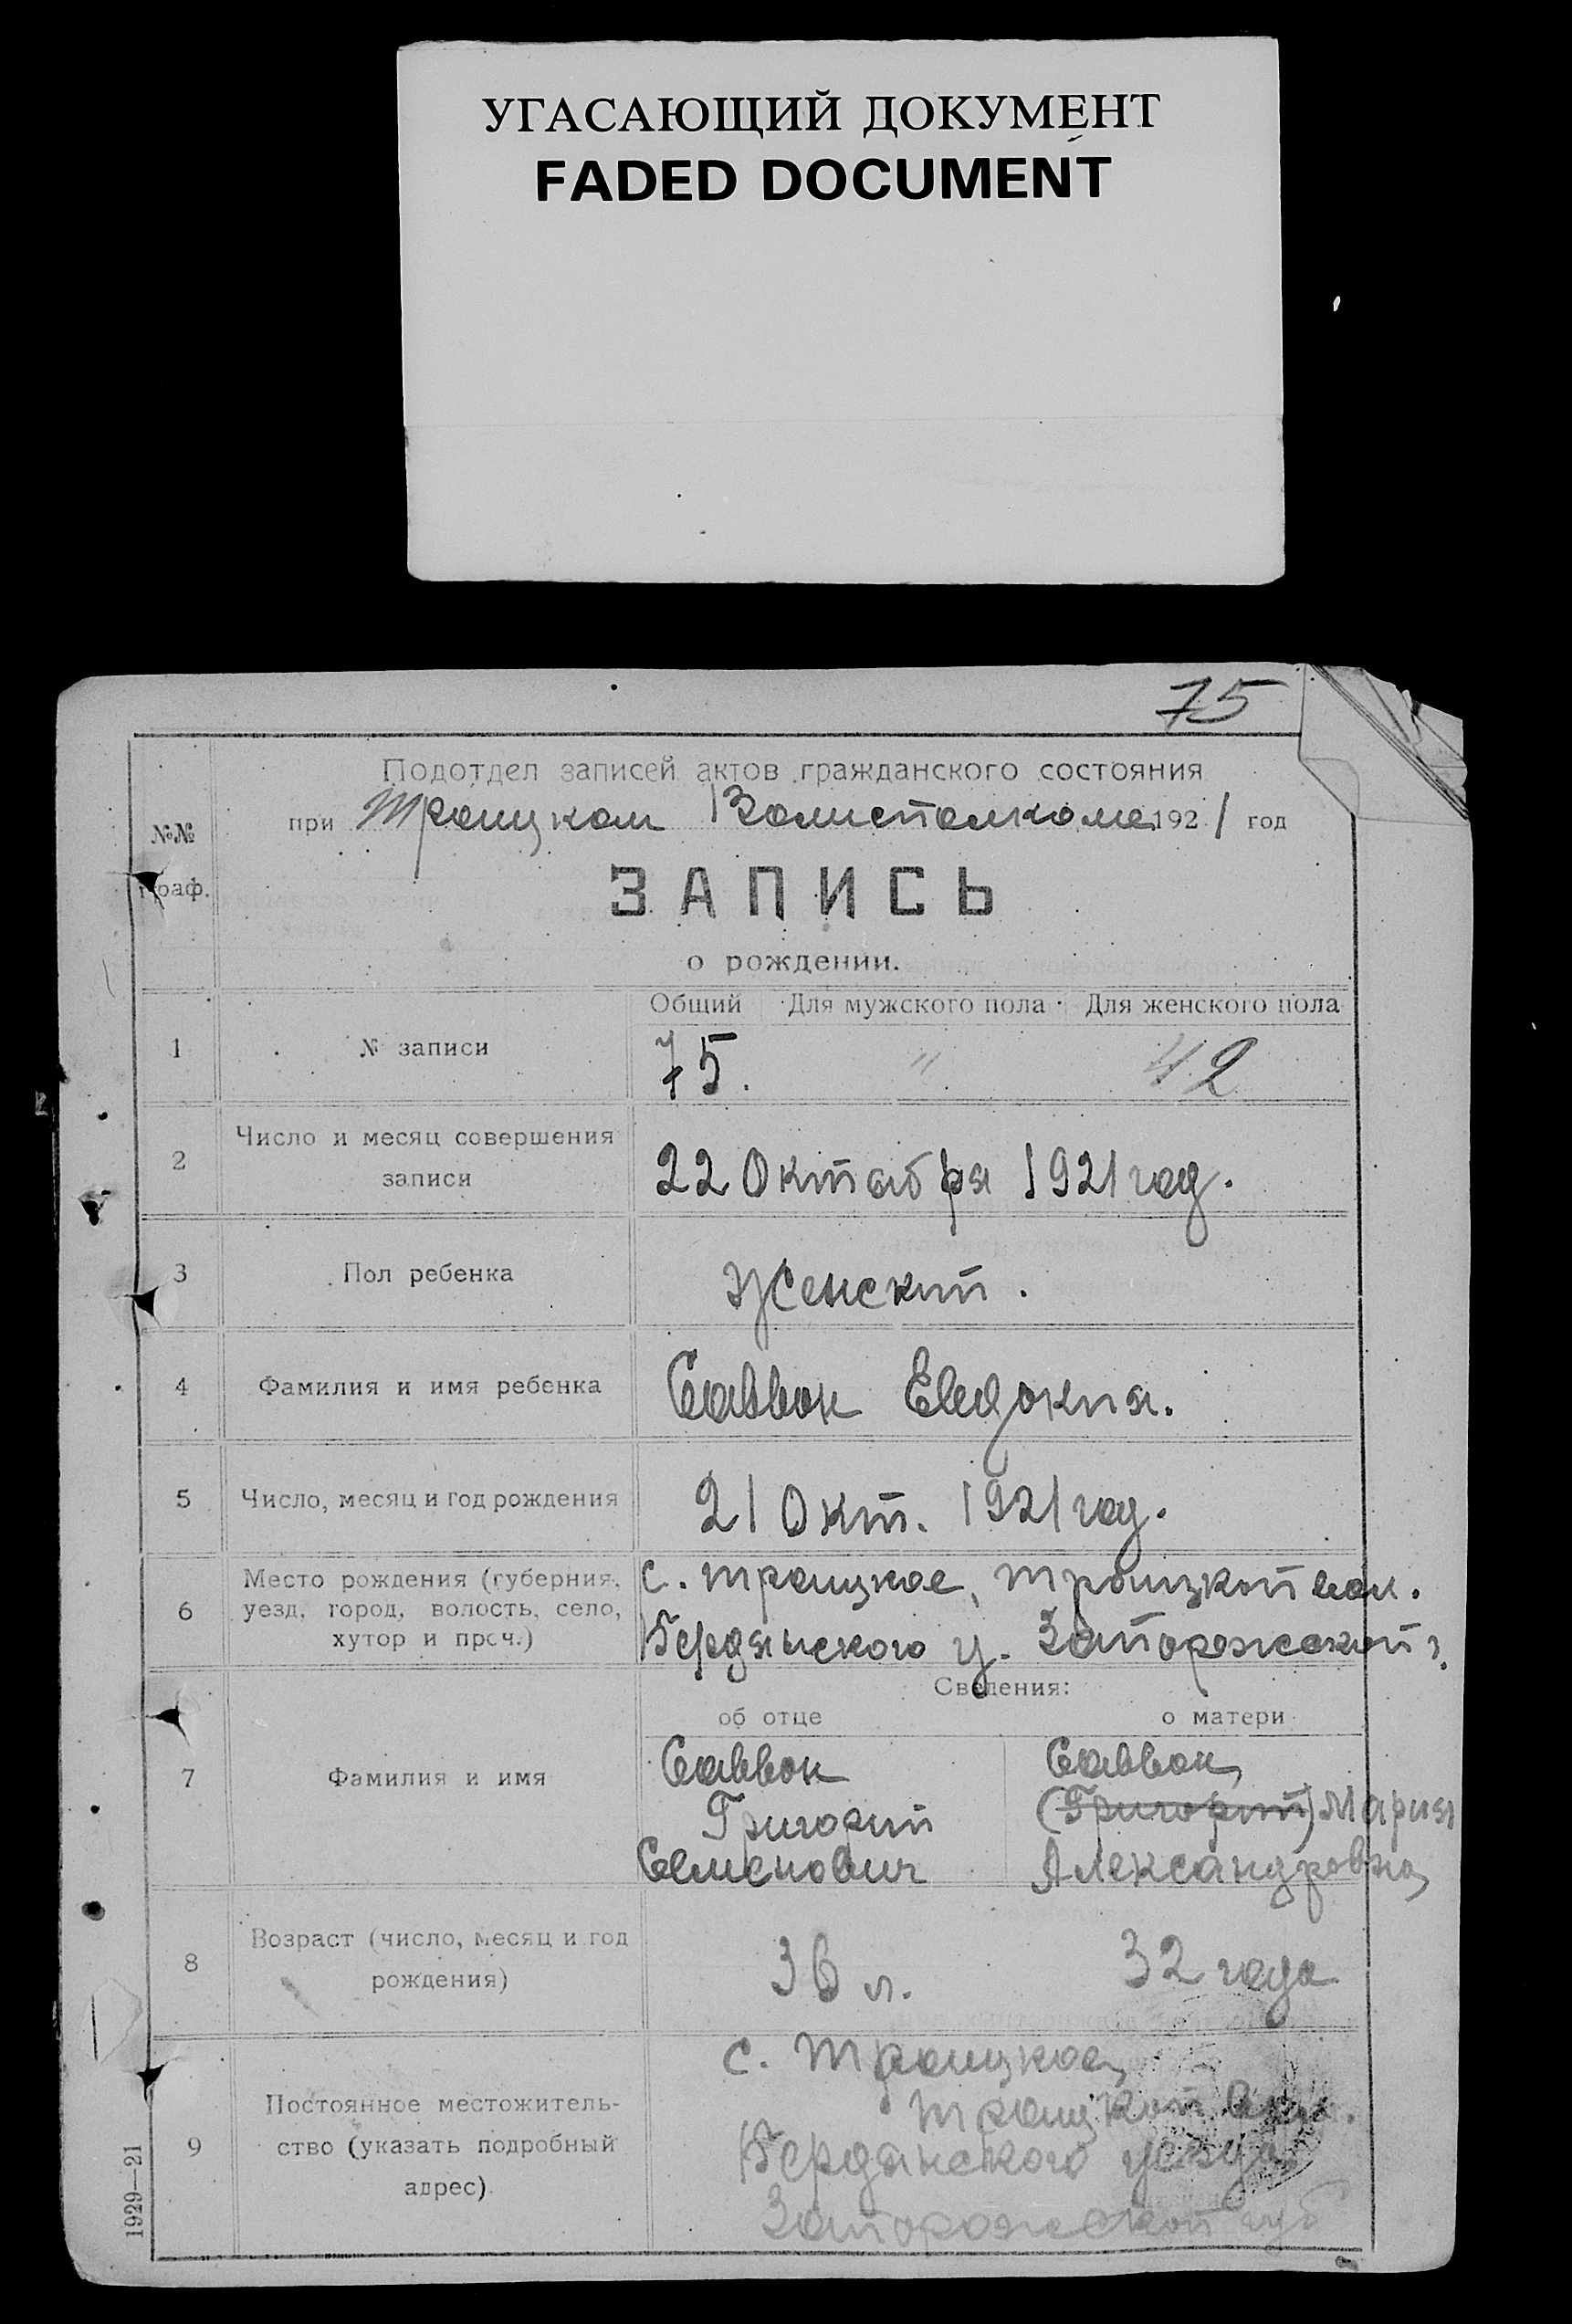 УГАСАЮЩИЙ ДОКУМЕНТ
FADED DOCUMENT
75
Подотдел записей актов гражданского состояния
при Троицком Волисполкоме 1921 год
№№
граф.
ЗАПИСЬ
о рождении.
Общий Для мужского пола Для женского пола
1 № записи 75. " 42
2 Число и месяц совершения
записи 22 Октября 1921 год.
3 Пол ребенка Женский.
4 Фамилия и имя ребенка Саввон Евдокия.
5 Число, месяц и год рождения 21 Окт. 1921 год.
6 Место рождения (губерния, с. Троицкое, Троицкой вол.
уезд, город, волость, село,
хутор и проч.) Бердянского у. Запорожской г.
Сведения:
об отце о матери
7 Фамилия и имя Саввон Саввон,
Григорий (Григорий) Мария
Семенович Александровна
8 Возраст (число, месяц и год
рождения) 36 л. 32 года
9 Постоянное местожитель-
ство (указать подробный
адрес)
с. Троицкое,
Троицкой вол.
Бердянского уезда
Запорожской губ
1929—21